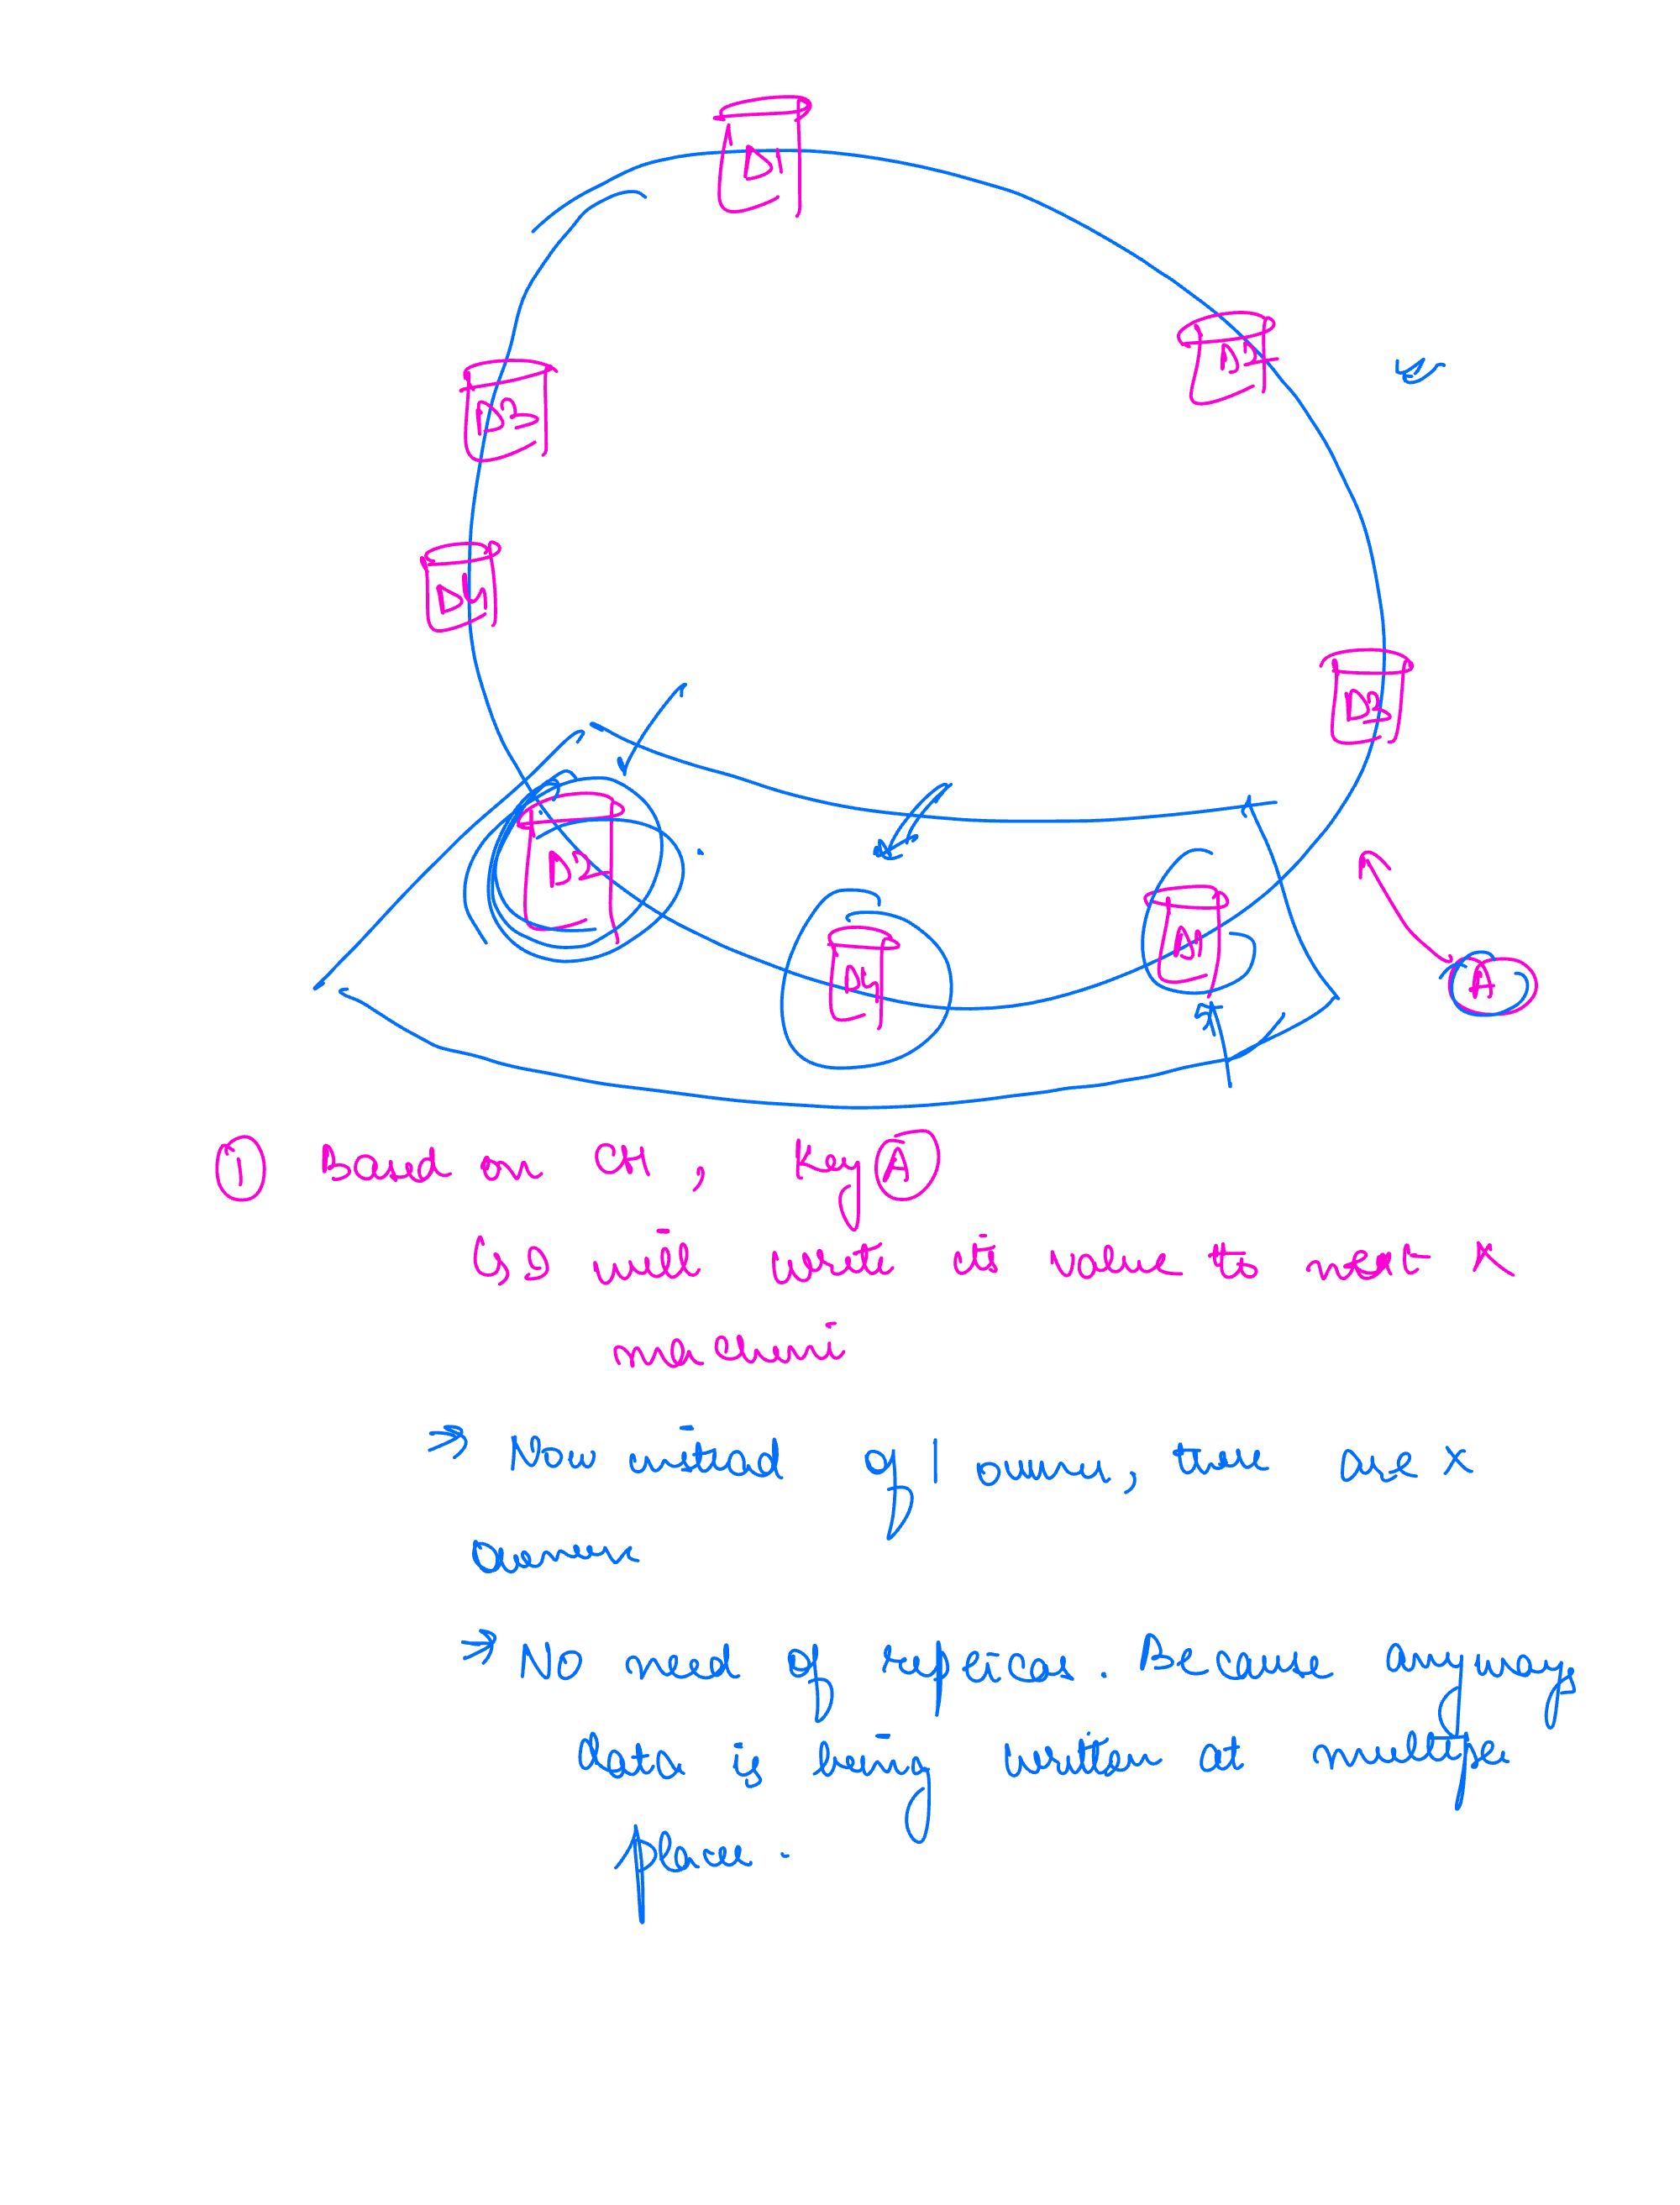 D1
D2
D3
D4
D3
D2
D4
D1
A
① Based on CH, Key Ⓐ
↳ I will write its value to next X
machine
→ Now instead of 1 owner, there are X
owners
→ No need of replicas. Because anyways
data is being written at multiple
places.